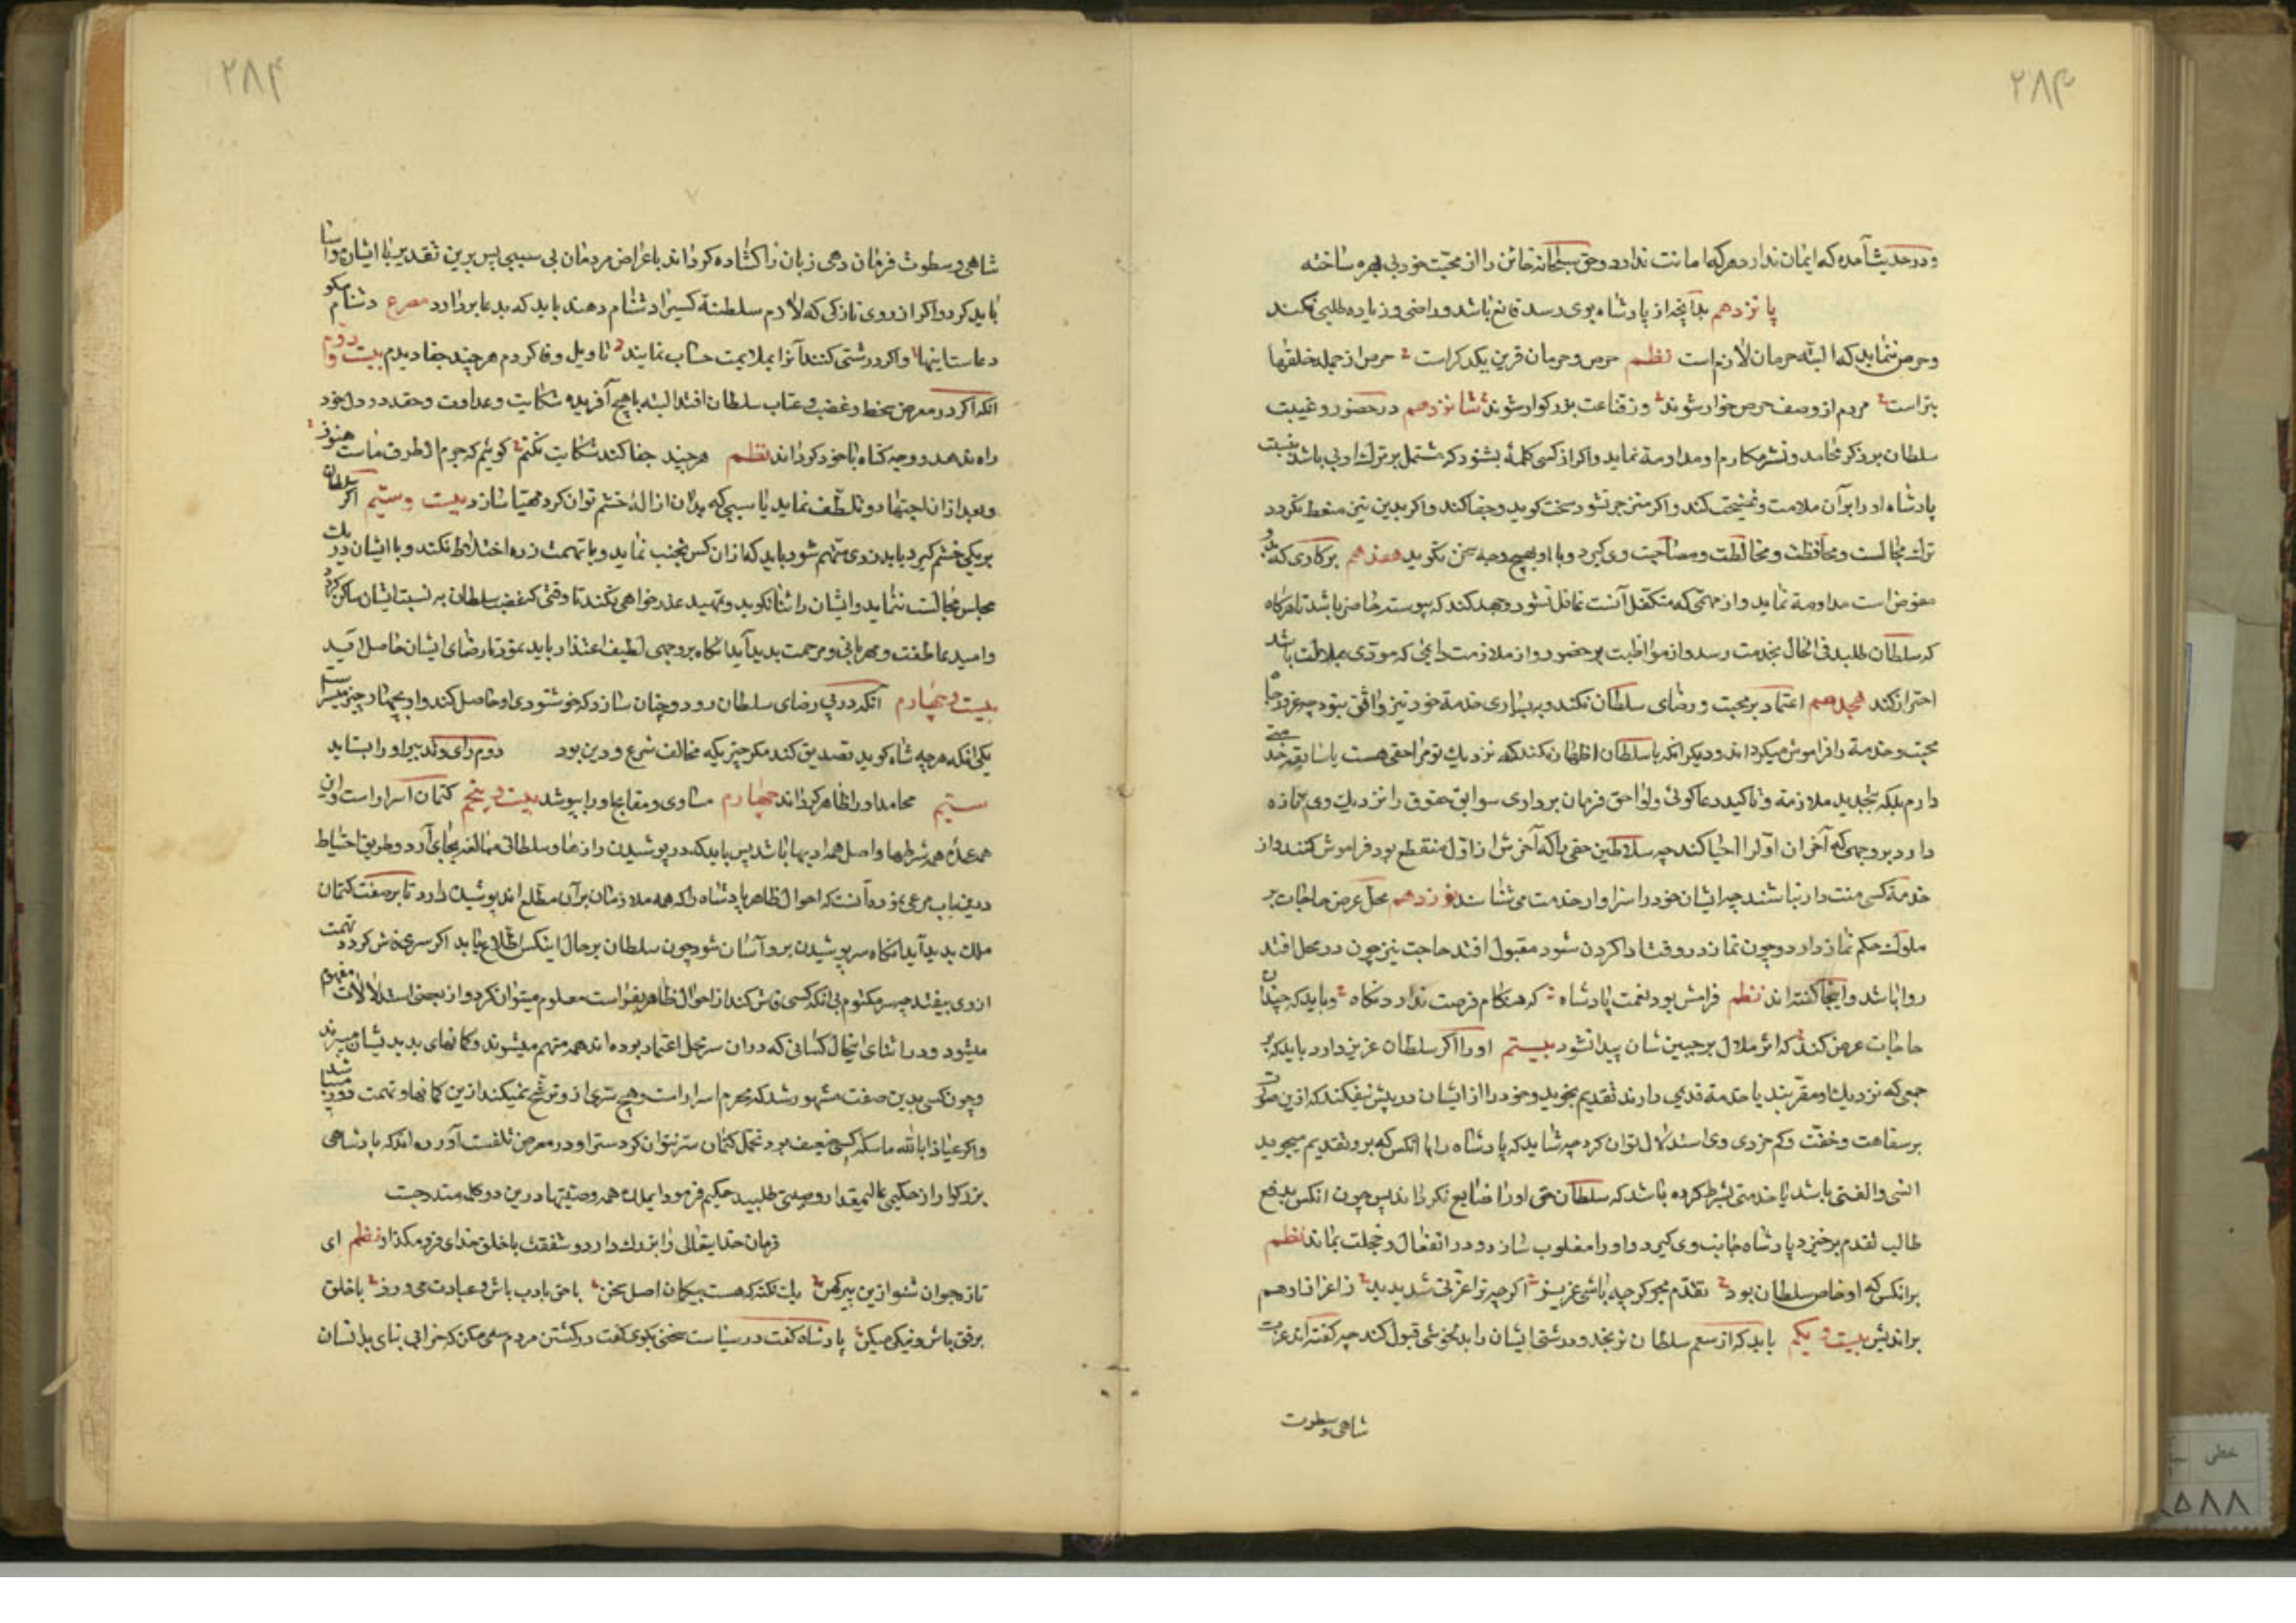 ۲۸۳
و در حدیث آمده که ایمان ندارد هر که امانت ندارد و حق سبحانه خائن را از محبت خود بی بهره ساخته
پانزدهم بدآنچه از پادشاه بوی رسد قانع باشد و راضی و زیاده طلبی نکند
و حرص ننماید که البته حرمان لازم است نظم حرص و حرمان قرین یکدکراست حرص از جمله خلقها
بتراست مردم از وصف حرص خوار شوند وز قناعت بزرکوار شوند شانزدهم در حضور و غیبت
سلطان بر ذکر محامد و نشر مکارم او مداومة نماید و اکر از کسی کلمهٔ بشنود که مشتمل بر ترک ادبی باشد بنسبت
پادشاه او را بر آن ملامت و نصیحت کند و اکر منزجر نشود سخت کوید و جفا کند و اکر بدین نیز متعظ نکردد
ترک مجالست و محافظت و مخالطت و مصاحبت وی کیرد و با او بهیچ وجه سخن نکوید هفدهم بر کاری که بدو
مفوض است مداومة نماید و از مهمی که متکفل آنست غافل نشود و جهد کند که پیوسته حاضر باشد تا هرکاه
که سلطان طلبد فی الحال بخدمت رسد و از مواظبت بر حضور و از ملازمت دایمی که مودّی بملالت باشد
احتراز کند هجدهم اعتماد بر محبت و رضای سلطان نکند و به بسیاری خدمة خود نیز واثق نبود چه غرور جاه
محبت و خدمة را فراموش میکرداند و دیکر انکه با سلطان اظهار نکند که نزدیک تو مرا حقی هست یا سابقه خدمتی
دارم بلکه بتجدید ملازمة و تاکید دعاکوئی و لواحق فرمان برداری سوابق حقوق را نزدیک وی تازه
دارد بر وجهی که آخر ان اول را احیا کند چه سلاطین حقی را که آخرش از اول منقطع بود فراموش کنند و از
خدمة کسی منت دار نباشند چه ایشان خود را سزاوار خدمت می شناسند نوزدهم محل عرض حاجات بر
ملوک حکم نماز دارد و چون نماز در وقت ادا کردن شود مقبول افتد حاجت نیز چون در محل افتد
روا باشد و اینجا کفته اند نظم فرامش بود نعمت پادشاه که هنکام فرصت ندارد نکاه و باید که چندان
حاجات عرض کند که اثر ملال بر جبین شان پیدا نشود بیستم او را اکر سلطان عزیز دارد باید که بر
جمعی که نزدیک او مقربند یا خدمة قدیمی دارند تقدیم نجوید و خود را از ایشان در پیش نیفکند که ازین صورت
بر سفاهت و خفّت و کم خردی وی استدلال توان کرد چه شاید که پادشاه را با انکس که برو تقدیم میجوید
انسی و الفتی باشد یا خدمتی بشرط کرده باشد که سلطان حق او را ضایع نکرداند پس چون انکس بدفع
طالب تقدم برخیزد پادشاه جانب وی کیرد و او را مغلوب سازد و در انفعال و خجلت بماند نظم
بر انکس که او خاص سلطان بود تقدّم مجو کر چه باشی عزیز اکر چه ترا عزّتی شد پدید ز اعزاز او هم
براندیش بیست و یکم باید که از ستم سلطان نرنجد و درشتی ایشان را بدلخوشی قبول کند چه کفته اند عزت
شاهی و سطوت
۲۸۴
شاهی و سطوت فرمان دهی زبان را کشاده کرداند باعراض مردمان بی سببی پس برین تقدیر با ایشان واسا
باید کرد و اکر از روی نازکی که لازم سلطنة کسیرا دشنام دهند باید که بدعا بردارد مصرع دشنام مکو
دعاست اینها و اکر درشتی کنند آنرا بملایمت حساب نمایند تاویل وفا کردم هر چند جفا دیدم بیست و دوم
انکه اکر در معرض سخط و غضب و عتاب سلطان افتد البته با هیچ آفریده شکایت و عداوت و حقد در دل خود
راه ندهد و وجه کناه با خود کرداند نظم هر چند جفا کند شکایت نکنم کویم که جرم از طرف ماست هنوز
و بعد از ان اجتهاد و تلطّف نماید یا سببی که بدان ازاله خشم توان کرد مهیا سازد بیست و سیّم اکر سلطان
بر یکی خشم کیرد یا بدزدی متهم شود باید که از ان کس تجنب نماید و با تهمت زده اختلاط نکند و با ایشان در یک
مجلس مجالست ننماید و ایشان را ثنا نکوید و تمهید عذر خواهی نکند تا وقتی که غضب سلطان به نسبت ایشان ساکن کردد
و امید عاطفت و مهربانی و مرحمت بدید آید انکاه بر وجهی لطیف اعتذار باید نمود تا رضای ایشان حاصل آید
بیست و چهارم آنکه در پی رضای سلطان رود و چنان سازد که خوشنودی او حاصل کند و او بچهار چیز میسر است
یکی انکه هر چه شاه کوید تصدیق کند مکر چیزیکه مخالف شرع و دین بود دوم رای و تدبیر او را بستاید
سیّم محامد او را ظاهر کرداند چهارم مساوی و مقابح او را بپوشد بیست و پنجم کتمان اسرار است و این
همه عمدهٔ همه شرطها و اصل همه ادبها باشد پس باید که در پوشیدن راز ها و سلطانی مبالغه بجای آرد و طریق احتیاط
درین باب مرعی بود و آنست که احوال ظاهر پادشاه را که همه ملازمان بر آن مطلع اند پوشیده دارد تا بر صفت کتمان
ملک بدید آید انکاه سر پوشیدن برو آسان شود چون سلطان بر حال اینکس اطلاع یابد اکر سری فاش کردد تهمت
از وی بیفتد چه سر مکتوم بی انکه کسی فاش کند از احوال ظاهر بفراست معلوم میتوان کرد و از بعضی استدلالات مفهوم
میشود و در اثنای اینحال کسانی که در ان سر محل اعتماد بوده اند همه متهم میشوند و کمانهای بد بدیشان میبرند
و چون کسی بدین صفت مشهور شد که محرم اسرار است و هیچ سّری از و ترشّح نمیکند ازین کمانها و تهمت دور باشد
و اکر عیاذا بالله ماسکه کسی ضعیف بود تحمّل کتمان سّر نتوان کرد سّر او در معرض تلفست آورده اند که پادشاهی
بزرکوار از حکیمی عالیمقدار وصیتی طلبید حکیم فرمود ایملک همه وصیتها درین دو کلمه مندرجست
فرمان خدایتعالی را بزرک دار و شفقت با خلق خدای فرو مکذار نظم ای
تازه جوان شنو ازین پیر کهن یک نکته که هست بیکمان اصل سخن با حق بادب باش و عبادت می ورز با خلق
برفق باش و نیکی میکن پادشاه کفت در سیاست سخنی بکوی کفت در کشتن مردم سعی مکن که خرابی بنای بدانسان
خطی